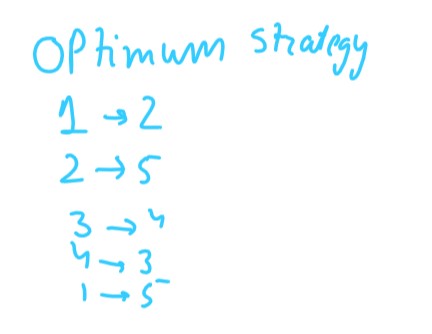 Optimum strategy
1 → 2
2 → 5
3 → 4
4 → 3
1 → 5